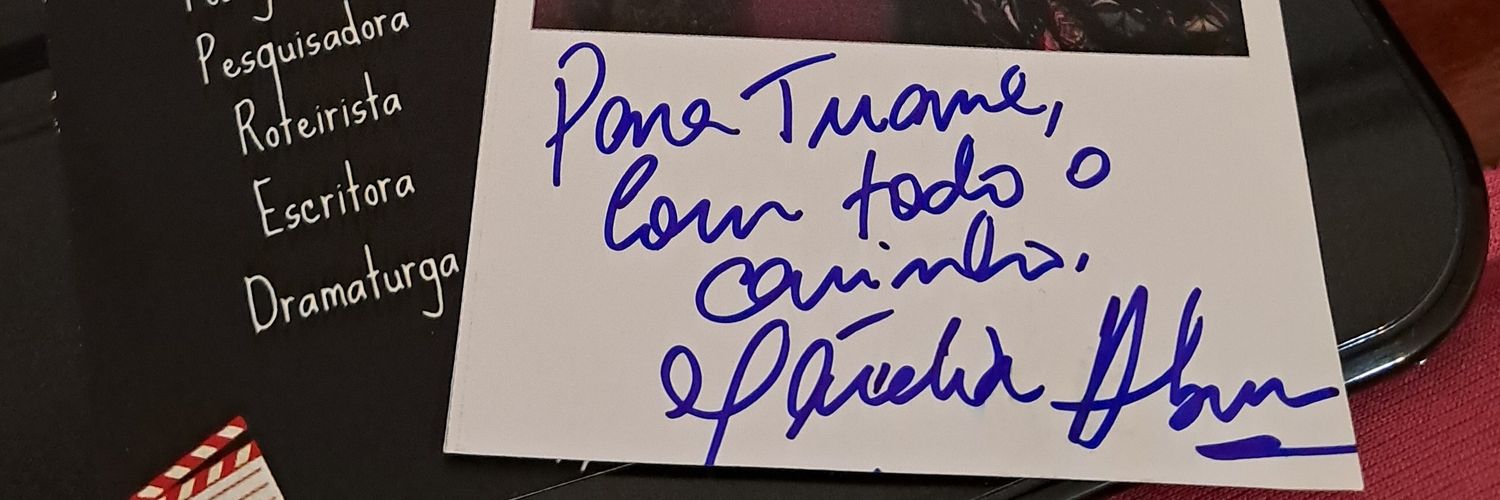 Pesquisadora
Roteirista
Escritora
Dramaturga
Para Tuane,
Com todo o
carinho.
Cláudia Abreu